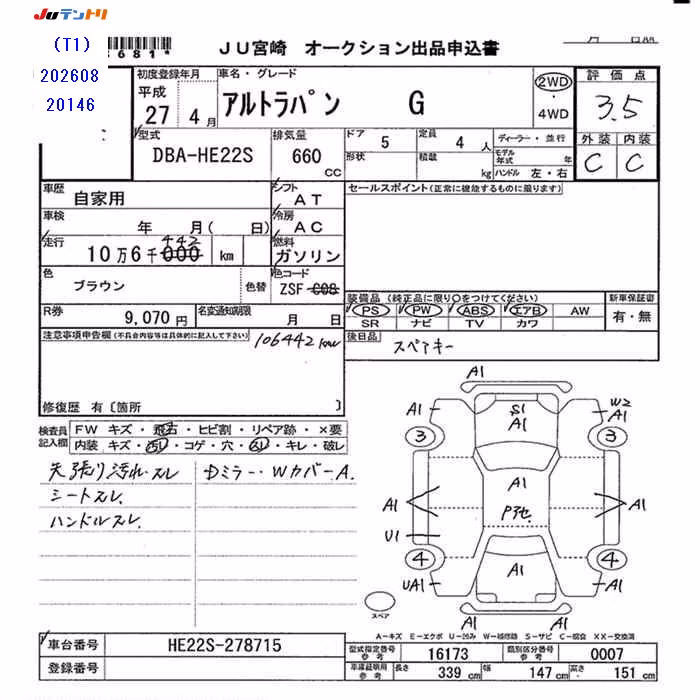 JUテントリ
(T1)
202608
20146
681*
JU宮崎 オークション出品申込書
初度登録年月
平成
27年 4月
車名・グレード
アルトラパン G
2WD
・
4WD
評価点
3.5
外装 内装
C C
型式
DBA-HE22S
排気量
660
CC
ドア 5
定員 4人
形状
積載 kg
ディーラー・並行
モデル年式 年
ハンドル 左・右
車歴
自家用
シフト
AT
セールスポイント(正常に機能するものに限ります)
車検
年 月( 日)
冷房
AC
走行
10万6千000 442 km
燃料
ガソリン
色
ブラウン
色替
色コード
ZSF C08
R券
9,070円
名変通知期限
月 日
装備品(純正品に限り○をつけてください)
PS PW ABS エアB AW
SR ナビ TV カワ
新車保証書
有・無
後日品
スペアキー
注意事項申告欄(不具合内容等は具体的に記入して下さい)
106442km
修復歴 有〔箇所 〕
検査員記入欄
FW キズ・飛石・ヒビ割・リペア跡・×要
内装 キズ・汚レ・コゲ・穴・スレ・キレ・破レ
天張り汚れ・スレ
シートスレ
ハンドルスレ
Dミラー・Wカバー.A.
A1
A1 S1 A1 W2 A1
3 3
A1 A1 A1
Pアセ
U1
4 4
UA1 A1 A1
スペア
A1
A−キズ E−エクボ U−凹み W−補修跡 S−サビ C−腐食 XX−交換済
車台番号
HE22S-278715
登録番号
型式指定番号 参考
16173
類別区分番号 参考
0007
車庫証明用 参考
長さ 339 cm 幅 147 cm 高さ 151 cm